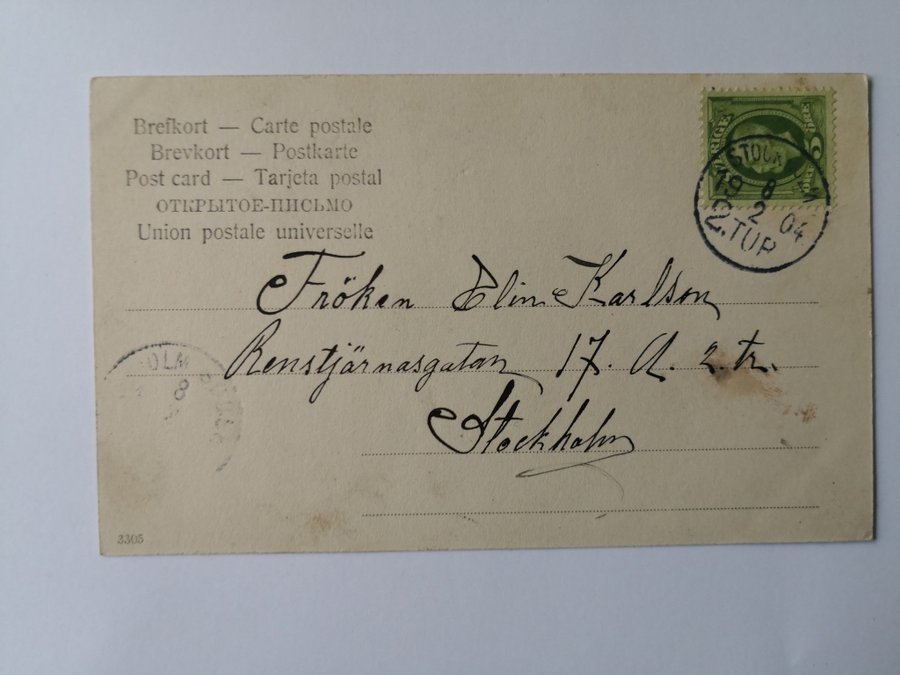 Brefkort — Carte postale
Brevkort — Postkarte
Post card — Tarjeta postal
ОТКРЫТОЕ-ПИСЬМО
Union postale universelle
STOCK M
19 8
2 04
2.TUR
Fröken Elin Karlson
Renstjärnasgatan 17. A. 2. tr.
Stockholm
OLM
8
3305